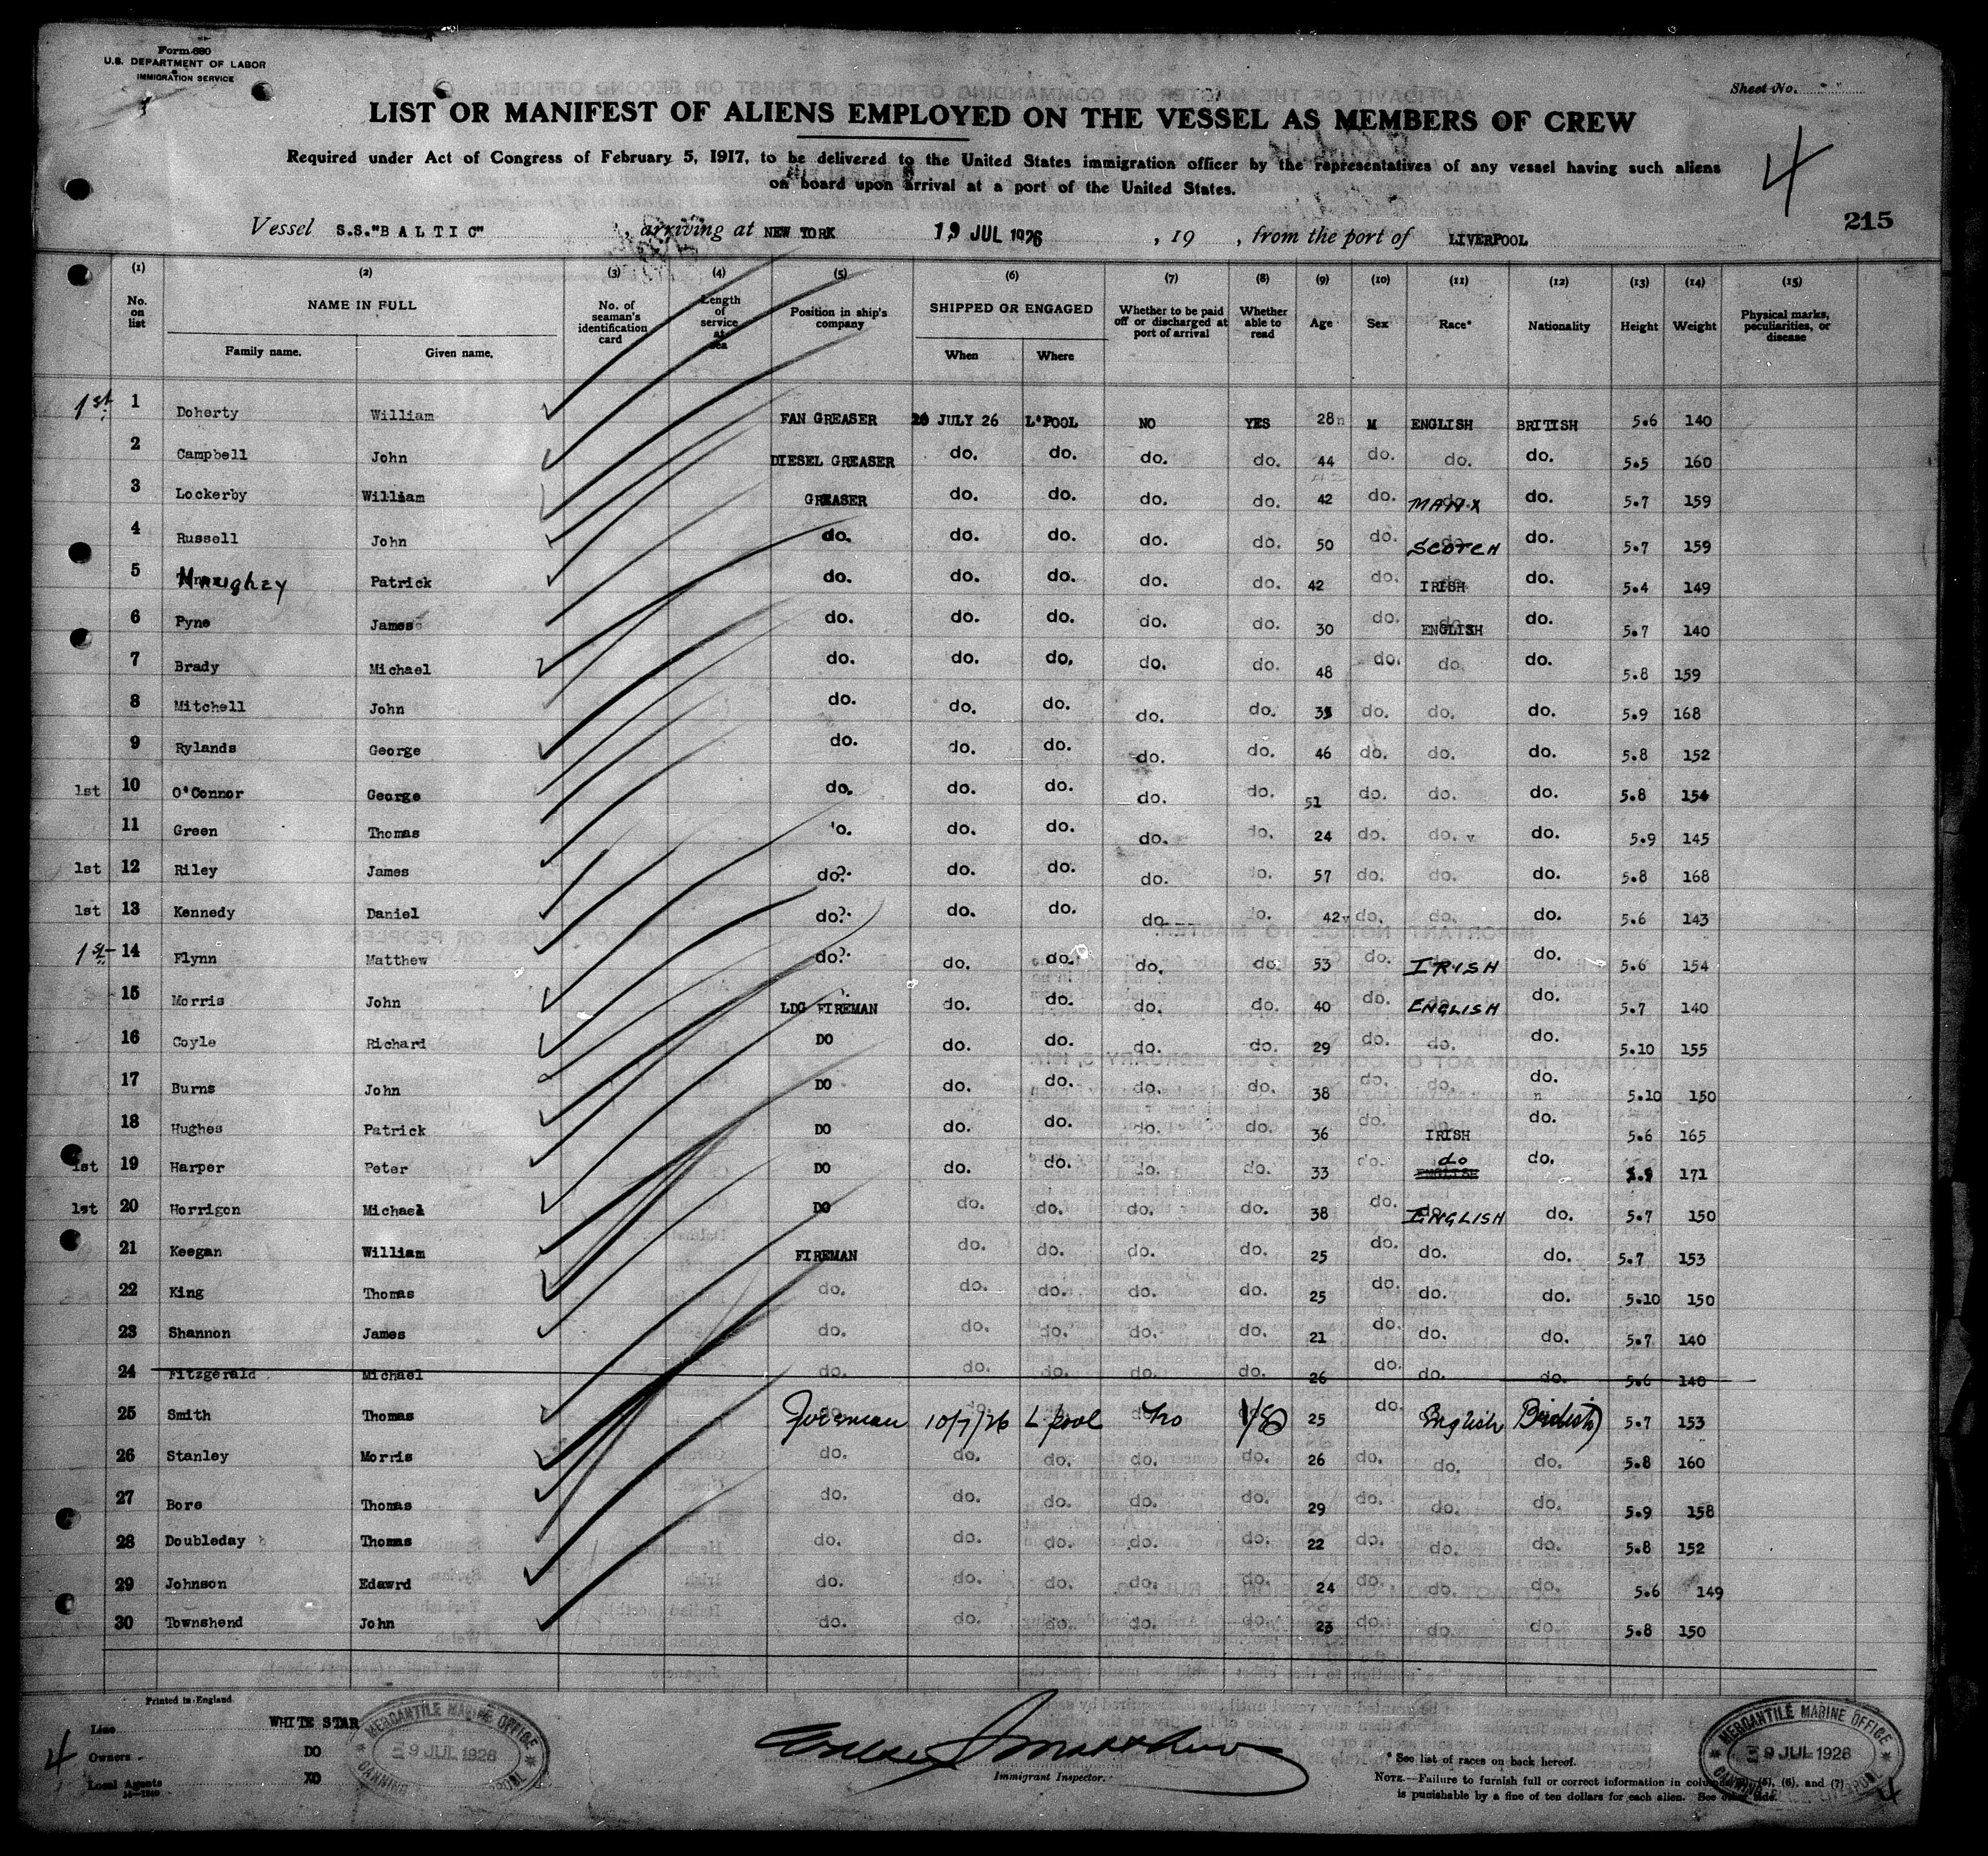 Form 680
U.S. DEPARTMENT OF LABOR
IMMIGRATION SERVICE
Sheet No.
LIST OR MANIFEST OF ALIENS EMPLOYED ON THE VESSEL AS MEMBERS OF CREW
Required under Act of Congress of February 5, 1917, to be delivered to the United States immigration officer by the representatives of any vessel having such aliens
on board upon arrival at a port of the United States.
4
215
Vessel S.S."BALTIC", arriving at NEW YORK 19 JUL 1926, 19 , from the port of LIVERPOOL
(1) (2) (3) (4) (5) (6) (7) (8) (9) (10) (11) (12) (13) (14) (15)
No. on list NAME IN FULL Family name. Given name. No. of seaman's identification card Length of service at sea Position in ship's company SHIPPED OR ENGAGED When Where Whether to be paid off or discharged at port of arrival Whether able to read Age Sex Race* Nationality Height Weight Physical marks, peculiarities, or disease
1st 1 Doherty William FAN GREASER JULY 26 L'POOL NO YES 28 M ENGLISH BRITISH 5.6 140
2 Campbell John DIESEL GREASER do. do. do. do. 44 do. do. do. 5.5 160
3 Lockerby William GREASER do. do. do. do. 42 do. MANX do. 5.7 159
4 Russell John do. do. do. do. do. 50 do. SCOTCH do. 5.7 159
5 Patrick do. do. do. do. do. 42 do. IRISH do. 5.4 149
6 Pyne James do. do. do. do. do. 30 do. ENGLISH do. 5.7 140
7 Brady Michael do. do. do. do. do. 48 do. do. do. 5.8 159
8 Mitchell John do. do. do. do. do. do. do. do. 5.9 168
9 Rylands George do. do. do. do. do. 46 do. do. do. 5.8 152
1st 10 O'Connor George do. do. do. do. do. 51 do. do. do. 5.8 154
11 Green Thomas do. do. do. do. do. 24 do. do. do. 5.9 145
1st 12 Riley James do. do. do. do. do. 57 do. do. do. 5.8 168
1st 13 Kennedy Daniel do. do. do. do. do. 42 do. do. do. 5.6 143
1st 14 Flynn Matthew do. do. do. do. do. 53 do. IRISH do. 5.6 154
15 Morris John LDG FIREMAN do. do. do. do. 40 do. ENGLISH do. 5.7 140
16 Coyle Richard DO do. do. do. do. 29 do. do. do. 5.10 155
17 Burns John DO do. do. do. do. 38 do. do. do. 5.10 150
18 Hughes Patrick DO do. do. do. do. 36 do. IRISH do. 5.6 165
1st 19 Harper Peter DO do. do. do. do. 33 do. do do. 171
1st 20 Horrigon Michael DO do. do. do. do. 38 do. ENGLISH do. 5.7 150
21 Keegan William FIREMAN do. do. do. do. 25 do. do. do. 5.7 153
22 King Thomas do. do. do. do. do. 25 do. do. do. 5.10 150
23 Shannon James do. do. do. do. do. 21 do. do. do. 5.7 140
24 Fitzgerald Michael do. do. do. do. do. 26 do. do. do. 5.6 140
25 Smith Thomas Fireman 10/7/26 L'pool No 25 do. English British 5.7 153
26 Stanley Morris do. do. do. do. do. 26 do. do. do. 5.8 160
27 Bore Thomas do. do. do. do. do. 29 do. do. do. 5.9 158
28 Doubleday Thomas do. do. do. do. do. 22 do. do. do. 5.8 152
29 Johnson Edawrd do. do. do. do. do. 24 do. do. do. 5.6 149
30 Townshend John do. do. do. do. do. 23 do. do. do. 5.8 150
Printed in England
Line WHITE STAR
Owners DO
Local Agents
4
MERCANTILE MARINE OFFICE
9 JUL 1926
CANNING LIVERPOOL
Immigrant Inspector.
* See list of races on back hereof.
NOTE.—Failure to furnish full or correct information in columns (5), (6), and (7)
is punishable by a fine of ten dollars for each alien. See other side.
MERCANTILE MARINE OFFICE
9 JUL 1926
CANNING LIVERPOOL
4